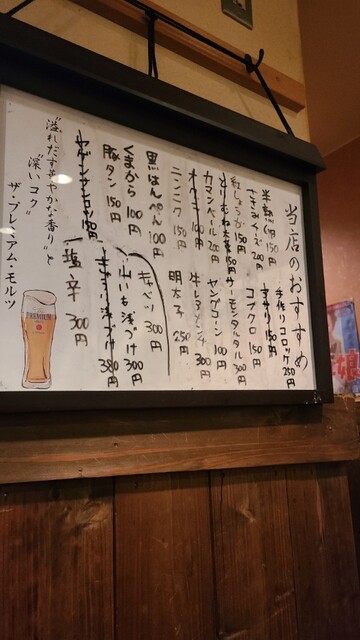 当店のおすすめ
半熟 150円
ささみチーズ 200円
紅しょうが 150円
とりむね大葉 150円
カマンベール 200円
オクラ 100円
ニンニク 150円
黒はんぺん 100円
くまから 100円
豚タン 150円
手作りコロッケ 250円
コブクロ 150円
サーモンタルタル 300円
ヤングコーン 100円
300円
明太子 250円
キャベツ 300円
山いも浅づけ 300円
浅づけ 380円
塩辛 300円
"溢れだす華やかな香り"と
"深いコク"
ザ・プレミアム・モルツ
PREMIUM
娘